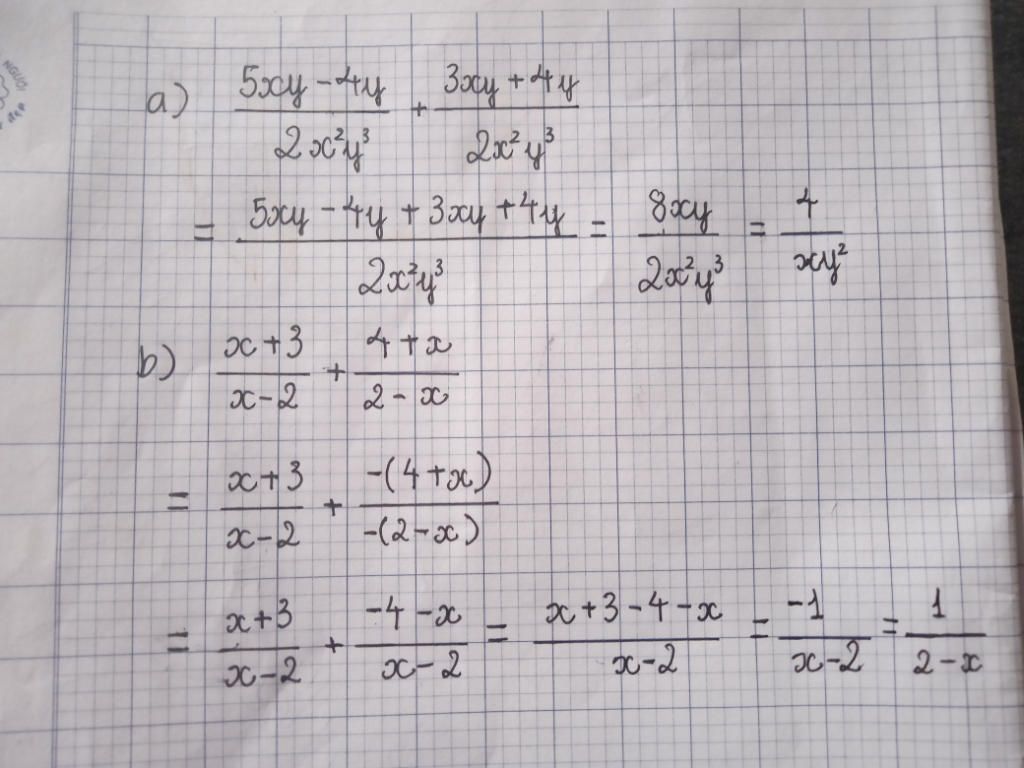 NGƯỜI
ĐẸP
a) (5xy - 4y)/(2x²y³) + (3xy + 4y)/(2x²y³)
= (5xy - 4y + 3xy + 4y)/(2x²y³) = 8xy/(2x²y³) = 4/(xy²)
b) (x + 3)/(x - 2) + (4 + x)/(2 - x)
= (x + 3)/(x - 2) + -(4 + x)/-(2 - x)
= (x + 3)/(x - 2) + (-4 - x)/(x - 2) = (x + 3 - 4 - x)/(x - 2) = -1/(x - 2) = 1/(2 - x)